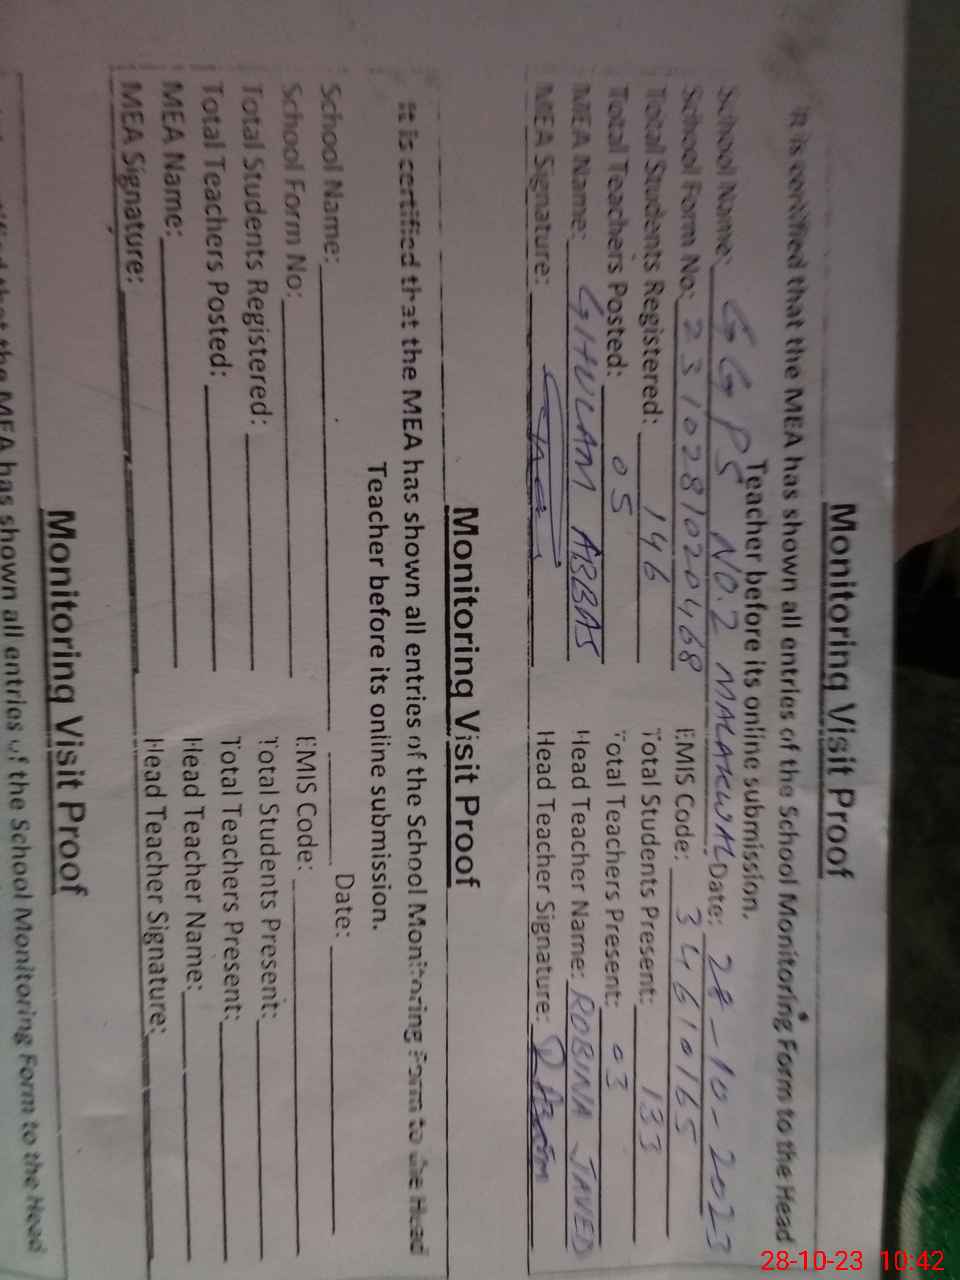 Monitoring Visit Proof
It is certified that the MEA has shown all entries of the School Monitoring Form to the Head
Teacher before its online submission.
School Name: GGPS NO.2 MALAKWAL Date: 28-10-2023
School Form No: 2310281020468 EMIS Code: 34610165
Total Students Registered: 146 Total Students Present: 133
Total Teachers Posted: 05 Total Teachers Present: 03
MEA Name: GHULAM ABBAS Head Teacher Name: ROBINA JAVED
MEA Signature: Head Teacher Signature:
Monitoring Visit Proof
It is certified that the MEA has shown all entries of the School Monitoring Form to the Head
Teacher before its online submission.
School Name: Date:
School Form No: EMIS Code:
Total Students Registered: Total Students Present:
Total Teachers Posted: Total Teachers Present:
MEA Name: Head Teacher Name:
MEA Signature: Head Teacher Signature:
Monitoring Visit Proof
that the MEA has shown all entries of the School Monitoring Form to the Head
28-10-23 10:42